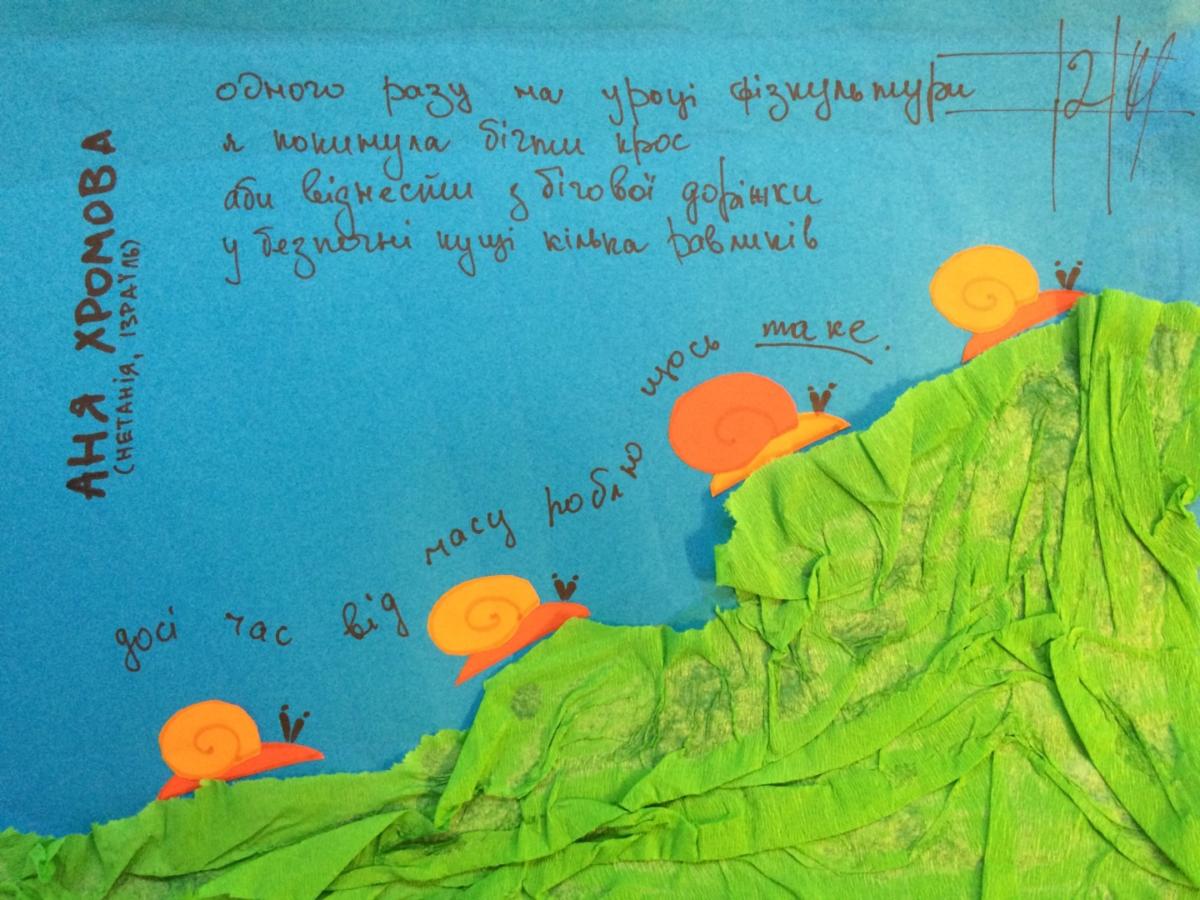 одного разу на уроці фізкультури
я покинула бігти крос
аби віднести з бігової доріжки
у безпечні кущі кілька равликів
досі час від
часу роблю
щось таке.
АНЯ ХРОМОВА
(НЕТАНІЯ, ІЗРАЇЛЬ)
2